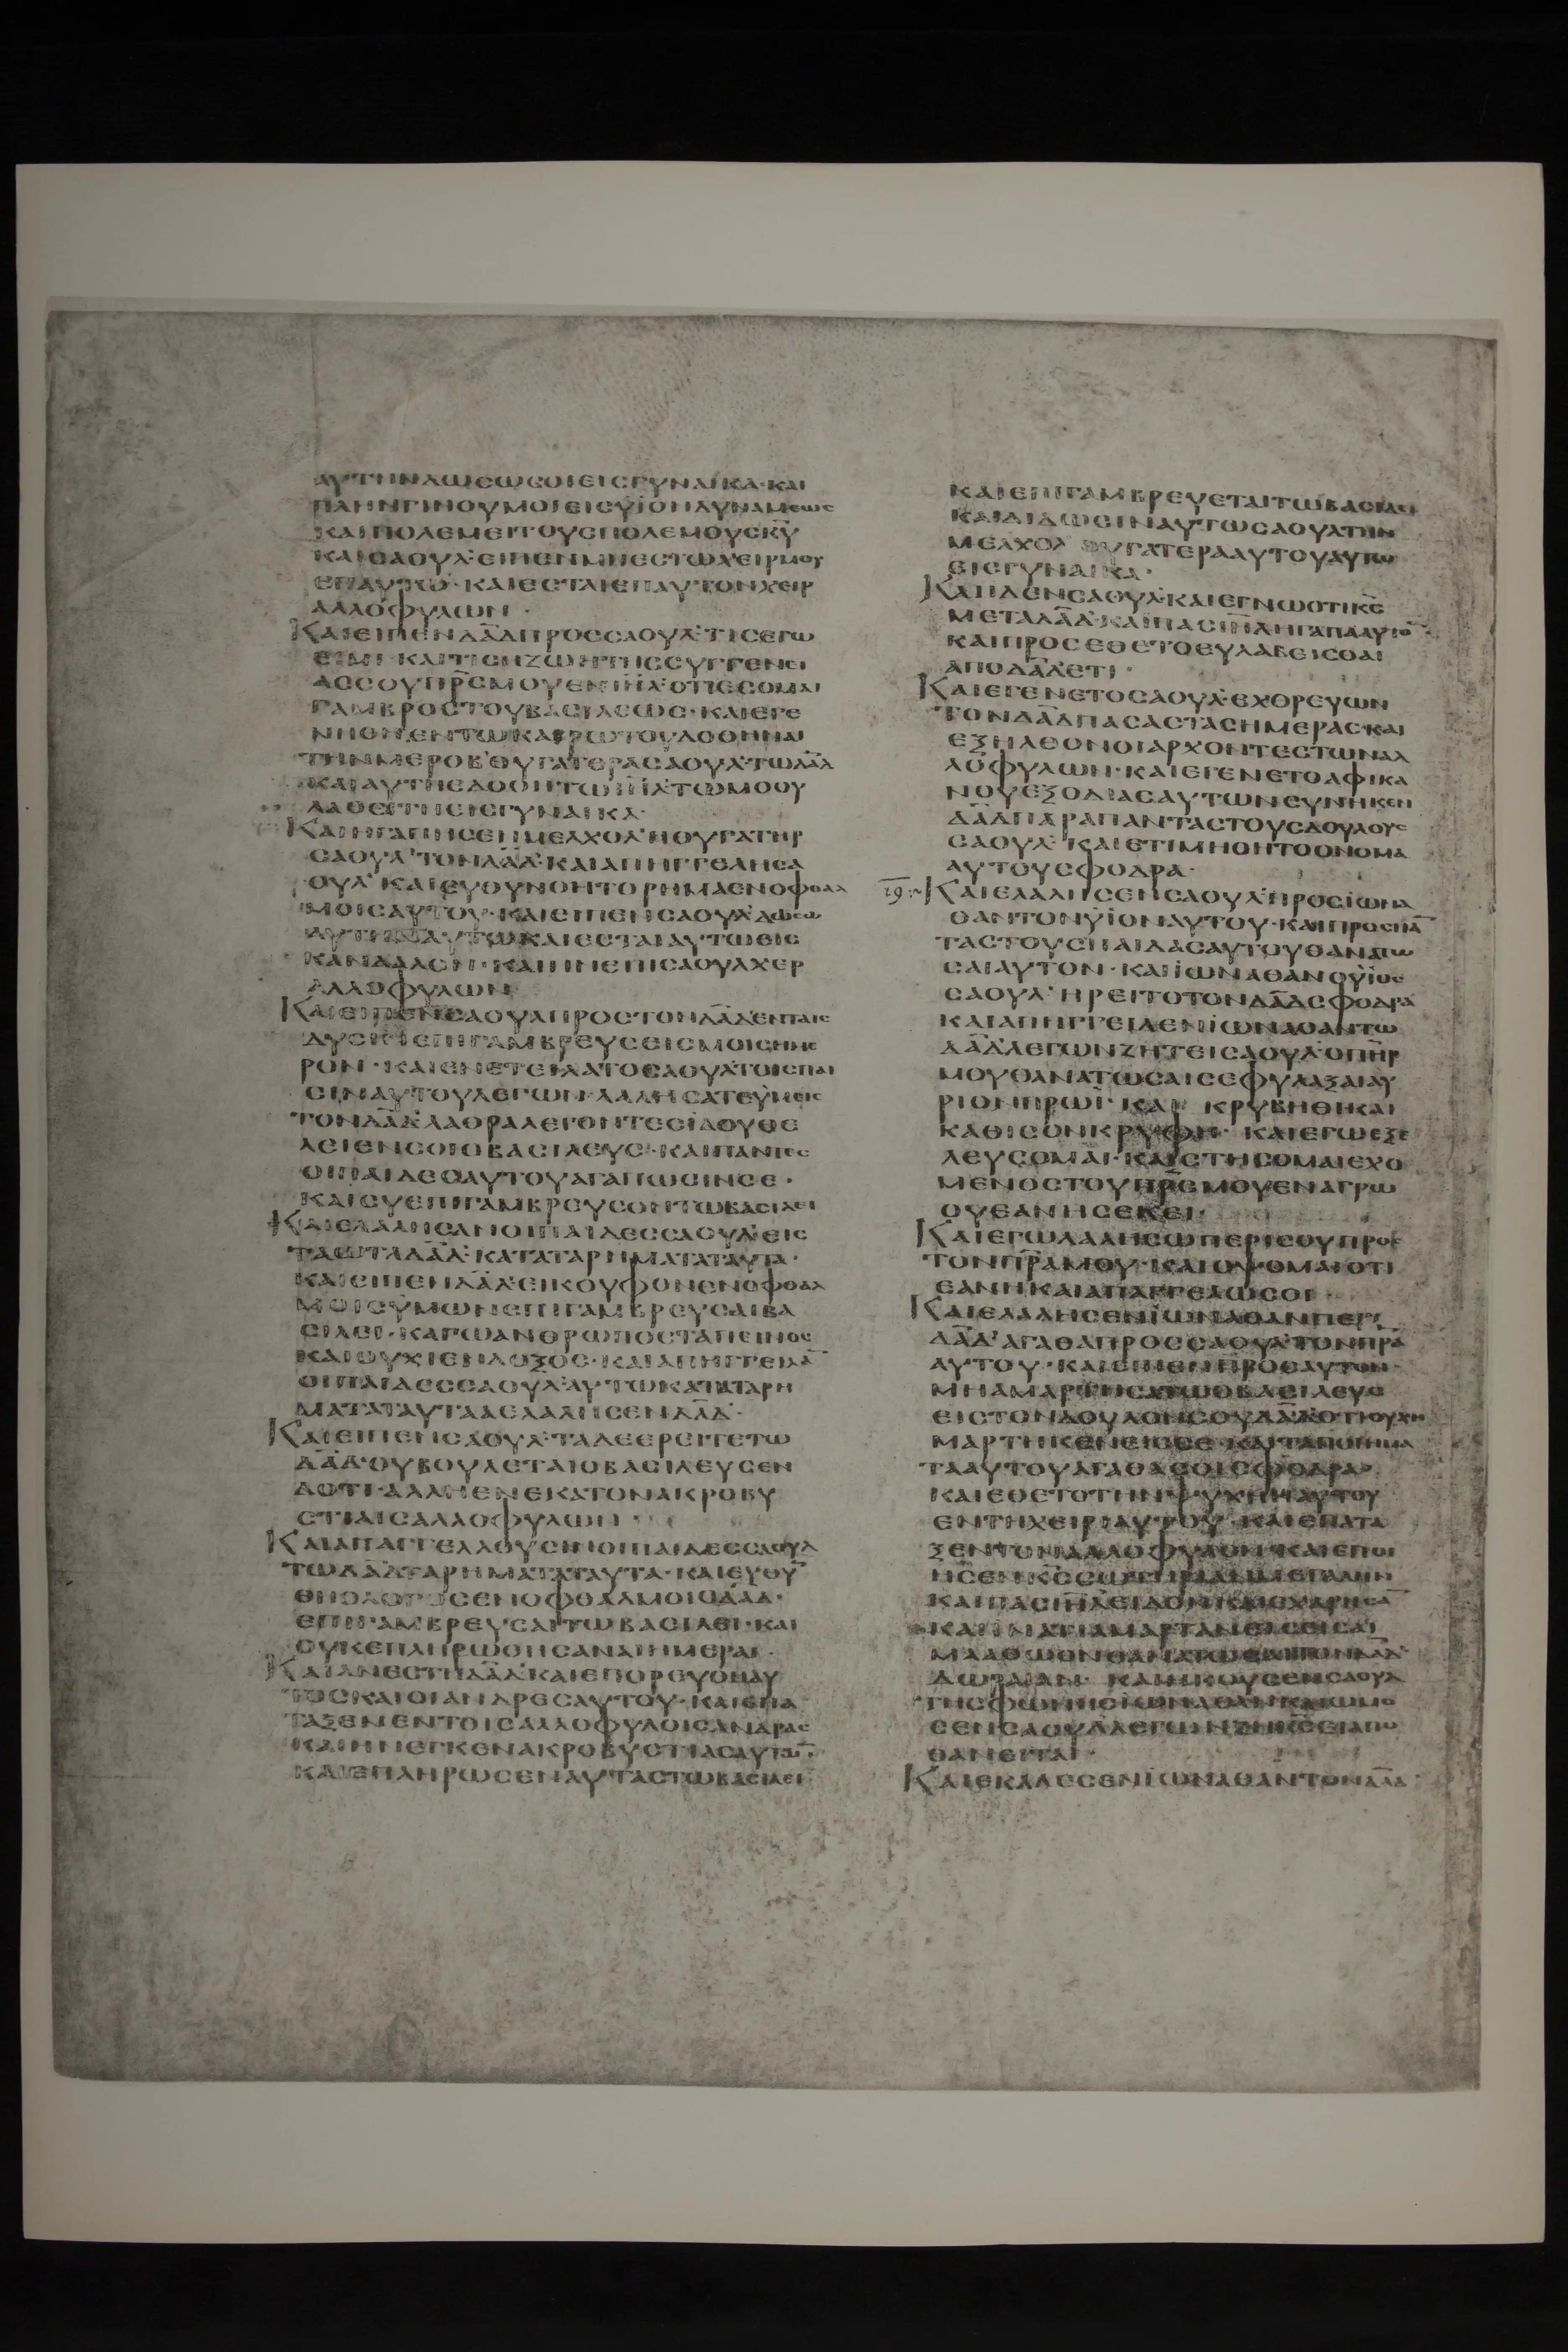 ΑΥΤΗΝΔΩCΩCΟΙΕΙCΓΥΝΑΙΚΑ·ΚΑΙ
ΠΛΗΝΓΙΝΟΥΜΟΙΕΙCΥΪΟΝΔΥΝΑΜΕΩC
ΚΑΙΠΟΛΕΜΕΙΤΟΥCΠΟΛΕΜΟΥCΚΥ̅
ΚΑΙCΑΟΥΛ·ΕΙΠΕΝΜΗΕCΤΩΧΕΙΡΜΟΥ
ΕΠΑΥΤΩ·ΚΑΙΕCΤΑΙΕΠΑΥΤΟΝΧΕΙΡ
ΑΛΛΟΦΥΛΩΝ·
ΚΑΙΕΙΠΕΝΔΑ̅Δ̅ΠΡΟCCΑΟΥΛ·ΤΙCΕΓΩ
ΕΙΜΙ·ΚΑΙΤΙCΗΖΩΗΤΗCCΥΓΓΕΝΕΙ
ΑCCΟΥΠΡ̅CΜΟΥΕΝΙΗ̅Λ·ΟΤΙΕCΟΜΑΙ
ΓΑΜΒΡΟCΤΟΥΒΑCΙΛΕΩC·ΚΑΙΕΓΕ
ΝΗΘΗΕΝΤΩΚΑΙΡΩΤΟΥΔΟΘΗΝΑΙ
ΤΗΝΜΕΡΟΒ·ΘΥΓΑΤΕΡΑCΑΟΥΛ·ΤΩΔΑ̅Δ̅
ΚΑΙΑΥΤΗΕΔΟΘΗΤΩ
ΛΑΘΕΙΤΗCΙCΓΥΝΑΙΚΑ·
ΚΑΙΗΓΑΠΗCΕΝΜΕΛΧΟΛ·ΗΘΥΓΑΤΗΡ
CΑΟΥΛ·ΤΟΝΔΑ̅Δ̅·ΚΑΙΑΠΗΓΓΕΛΗCΑ
ΟΥΛ·ΚΑΙΕΥΘΥΝΘΗΤΟΡΗΜΑΕΝΟΦΘΑΛ
ΜΟΙCΑΥΤΟΥ·ΚΑΙΕΙΠΕΝCΑΟΥΛ·ΔΩCΩ
ΑΥΤΗΝΑΥΤΩΚΑΙΕCΤΑΙΑΥΤΩΕΙC
ΚΑΝΔΑΛΟΝ·ΚΑΙΗΝΕΠΙCΑΟΥΛΧΕΡ
ΑΛΛΟΦΥΛΩΝ·
ΚΑΙΕΙΠΕΝCΑΟΥΛΠΡΟCΤΟΝΔΑ̅Δ̅·ΕΝΤΑΙC
ΔΥCΙΝΕΠΙΓΑΜΒΡΕΥCΕΙCΜΟΙCΗΜΕ
ΡΟΝ·ΚΑΙΕΝΕΤΕΙΛΑΤΟCΑΟΥΛ·ΤΟΙCΠΑΙ
CΙΝΑΥΤΟΥΛΕΓΩΝ·ΛΑΛΗCΑΤΕΥΜΕΙC
ΤΟΝΔΑ̅Δ̅·ΛΑΘΡΑΛΕΓΟΝΤΕCΙΔΟΥΘΕ
ΛΕΙΕΝCΟΙΟΒΑCΙΛΕΥC·ΚΑΙΠΑΝΤΕC
ΟΙΠΑΙΔΕCΑΥΤΟΥΑΓΑΠΩCΙΝCΕ·
ΚΑΙCΥΕΠΙΓΑΜΒΡΕΥCΟΝΤΩΒΑCΙΛΕΙ
ΚΑΙΕΛΑΛΗCΑΝΟΙΠΑΙΔΕCCΑΟΥΛ·ΕΙC
ΤΑΩΤΑΔΑ̅Δ̅·ΚΑΤΑΤΑΡΗΜΑΤΑΤΑΥΤΑ·
ΚΑΙΕΙΠΕΝΔΑ̅Δ̅·ΕΙΚΟΥΦΟΝΕΝΟΦΘΑΛ
ΜΟΙCΥΜΩΝΕΠΙΓΑΜΒΡΕΥCΑΙΒΑ
CΙΛΕΙ·ΚΑΓΩΑΝΘΡΩΠΟCΤΑΠΕΙΝΟC
ΚΑΙΟΥΧΙΕΝΔΟΞΟC·ΚΑΙΑΠΗΓΓΕΙΛΑ̅
ΟΙΠΑΙΔΕCCΑΟΥΛ·ΑΥΤΩΚΑΤΑΤΑΡΗ
ΜΑΤΑΤΑΥΤΑΑΕΛΑΛΗCΕΝΔΑ̅Δ̅·
ΚΑΙΕΙΠΕΝCΑΟΥΛ·ΤΑΔΕΕΡΕΙΤΕΤΩ
ΔΑ̅Δ̅·ΟΥΒΟΥΛΕΤΑΙΟΒΑCΙΛΕΥCΕΝ
ΔΟΤΙ·ΑΛΛΗΕΝΕΚΑΤΟΝΑΚΡΟΒΥ
CΤΙΑΙCΑΛΛΟΦΥΛΩΝ·
ΚΑΙΑΠΑΓΓΕΛΛΟΥCΙΝΟΙΠΑΙΔΕCCΑΟΥΛ
ΤΩΔΑ̅Δ̅ΤΑΡΗΜΑΤΑΤΑΥΤΑ·ΚΑΙΕΥΘΥ̅
ΘΗΟΛΟΓΟCΕΝΟΦΘΑΛΜΟΙCΔΑ̅Δ̅·
ΕΠΙΓΑΜΒΡΕΥCΑΙΤΩΒΑCΙΛΕΙ·ΚΑΙ
ΟΥΚΕΠΛΗΡΩΘΗCΑΝΑΙΗΜΕΡΑΙ·
ΚΑΙΑΝΕCΤΗΔΑ̅Δ̅·ΚΑΙΕΠΟΡΕΥΘΗΑΥ
ΤΟCΚΑΙΟΙΑΝΔΡΕCΑΥΤΟΥ·ΚΑΙΕΠΑ
ΤΑΞΕΝΕΝΤΟΙCΑΛΛΟΦΥΛΟΙCΑΝΔΡΑC
ΚΑΙΗΝΕΓΚΕΝΑΚΡΟΒΥCΤΙΑCΑΥΤΩ̅·
ΚΑΙΕΠΛΗΡΩCΕΝΑΥΤΑCΤΩΒΑCΙΛΕΙ
ΚΑΙΕΠΙΓΑΜΒΡΕΥΕΤΑΙΤΩΒΑCΙΛΕΙ
ΚΑΙΔΙΔΩCΙΝΑΥΤΩCΑΟΥΛΤΗΝ
ΜΕΛΧΟΛ ΘΥΓΑΤΕΡΑΑΥΤΟΥΑΥΤΩ
ΕΙCΓΥΝΑΙΚΑ·
ΚΑΙΙΔΕΝCΑΟΥΛ·ΚΑΙΕΓΝΩΟΤΙΚ̅C̅
ΜΕΤΑΔΑ̅Δ̅·ΚΑΙΠΑCΙΗ̅ΛΗΓΑΠΑΑΥΤΟ̅·
ΚΑΙΠΡΟCΕΘΕΤΟΕΥΛΑΒΕΙCΘΑΙ
ΑΠΟΔΑ̅Δ̅ΕΤΙ·
ΚΑΙΕΓΕΝΕΤΟCΑΟΥΛ·ΕΧΘΡΕΥΩΝ
ΤΟΝΔΑ̅Δ̅ΠΑCΑCΤΑCΗΜΕΡΑCΚΑΙ
ΕΞΗΛΘΟΝΟΙΑΡΧΟΝΤΕCΤΩΝΑΛ
ΛΟΦΥΛΩΝ·ΚΑΙΕΓΕΝΕΤΟΑΦΙΚΑ
ΝΟΥΕΞΟΔΙΑCΑΥΤΩΝCΥΝΗΚΕΝ
ΔΑ̅Δ̅ΠΑΡΑΠΑΝΤΑCΤΟΥCΔΟΥΛΟΥC
CΑΟΥΛ·ΚΑΙΕΤΙΜΗΘΗΤΟΟΝΟΜΑ
ΑΥΤΟΥCΦΟΔΡΑ·
19·ΚΑΙΕΛΑΛΗCΕΝCΑΟΥΛ·ΠΡΟCΪΩΝΑ
ΘΑΝΤΟΝΥΪΟΝΑΥΤΟΥ·ΚΑΙΠΡΟCΠΑ̅
ΤΑCΤΟΥCΠΑΙΔΑCΑΥΤΟΥΘΑΝΑΤΩ
CΑΙΑΥΤΟΝ·ΚΑΙΪΩΝΑΘΑΝΟΥΪΟC
CΑΟΥΛ·ΗΡΕΙΤΟΤΟΝΔΑ̅Δ̅CΦΟΔΡΑ
ΚΑΙΑΠΗΓΓΕΙΛΕΝΪΩΝΑΘΑΝΤΩ
ΔΑ̅Δ̅ΛΕΓΩΝΖΗΤΕΙCΑΟΥΛ·ΟΠΗ̅Ρ
ΜΟΥΘΑΝΑΤΩCΑΙCΕΦΥΛΑΞΑΙΑΥ
ΡΙΟΝΠΡΩΪ·ΚΑΙ ΚΡΥΒΗΘΙΚΑΙ
ΚΑΘΙCΟΝΚΡΥΦΗ· ΚΑΙΕΓΩΕΞΕ
ΛΕΥCΟΜΑΙ·ΚΑΙCΤΗCΟΜΑΙΕΧΟ
ΜΕΝΟCΤΟΥΠΡ̅CΜΟΥΕΝΑΓΡΩ
ΟΥΕΑΝΗCΕΚΕΙ·
ΚΑΙΕΓΩΛΑΛΗCΩΠΕΡΙCΟΥΠΡΟC
ΤΟΝΠΡ̅ΑΜΟΥ·ΚΑΙΟΨΟΜΑΙΟΤΙ
ΕΑΝΗΚΑΙΑΠΑΓΓΕΛΩCΟΙ·
ΚΑΙΕΛΑΛΗCΕΝΪΩΝΑΘΑΝΠΕΡΙ
ΔΑ̅Δ̅·ΑΓΑΘΑΠΡΟCCΑΟΥΛ·ΤΟΝΠΡ̅Α
ΑΥΤΟΥ·ΚΑΙΕΙΠΕΝΠΡΟCΑΥΤΟΝ·
ΜΗΑΜΑΡΤΗCΑΤΩΟΒΑCΙΛΕΥC
ΕΙCΤΟΝΔΟΥΛΟΝCΟΥΔΑ̅Δ̅ΟΤΙΟΥΧΗ
ΜΑΡΤΗΚΕΝΕΙCCΕ·ΚΑΙΤΑΠΟΙΗΜΑ
ΤΑΑΥΤΟΥΑΓΑΘΑCΟΙCΦΟΔΡΑ·
ΚΑΙΕΘΕΤΟΤΗΝΨΥΧΗΝΑΥΤΟΥ
ΕΝΤΗΧΕΙΡΙΑΥΤΟΥ·ΚΑΙΕΠΑΤΑ
ΞΕΝΤΟΝΑΛΛΟΦΥΛΟΝ·ΚΑΙΕΠΟΙ
ΗCΕΝΚ̅C̅CΩΤΗΡΙΑΝΜΕΓΑΛΗΝ
ΚΑΙΠΑCΙΗ̅ΛΕΙΔΟΝΚΑΙΕΧΑΡΗCΑ̅
ΚΑΙΙΝΑΤΙΑΜΑΡΤΑΝΕΙCΕΙCΑΙ
ΜΑΑΘΩΟΝΘΑΝΑΤΩCΑΙΤΟΝΔΑ̅Δ̅
ΔΩΡΑΙΑΝ· ΚΑΙΗΚΟΥCΕΝCΑΟΥΛ
ΤΗCΦΩΝΗCΪΩΝΑΘΑΝΚΑΙΩΜΟ
CΕΝCΑΟΥΛΛΕΓΩΝΖΗΚ̅C̅ΕΙΑΠΟ
ΘΑΝΕΙΤΑΙ·
ΚΑΙΕΚΑΛΕCΕΝΪΩΝΑΘΑΝΤΟΝΔΑ̅Δ̅